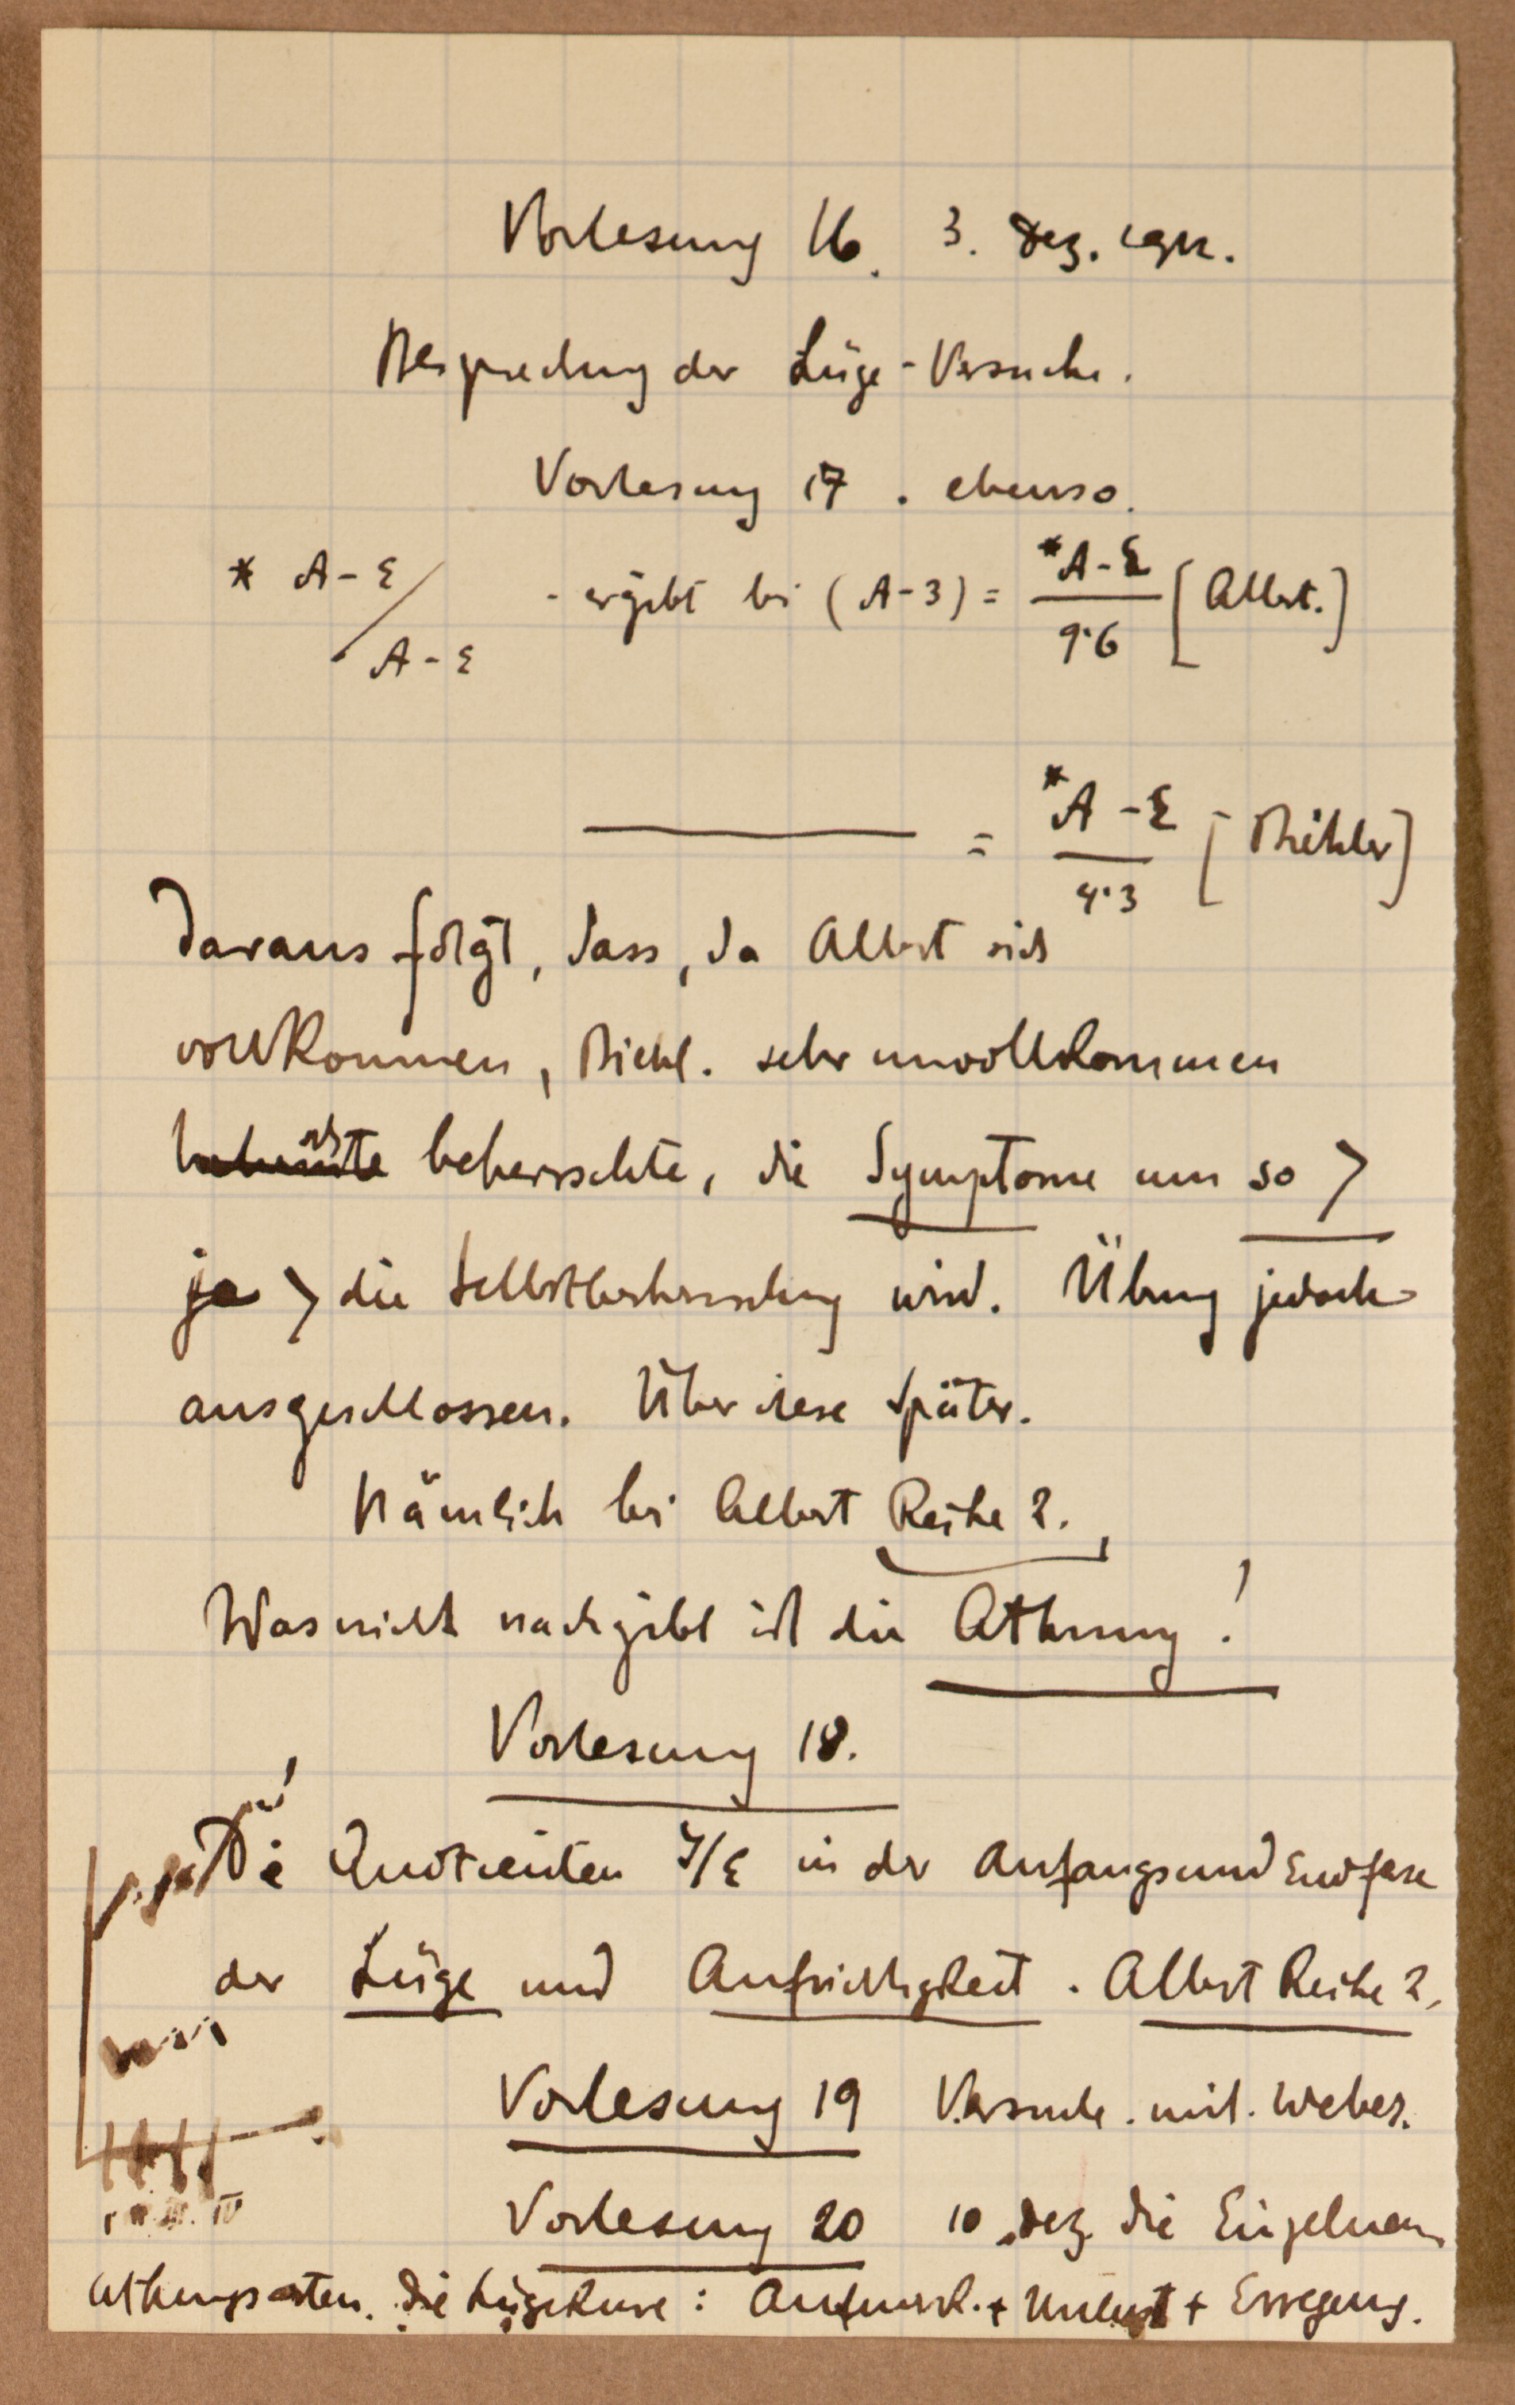 Vorlesung 16. 3. Dez. 1912.
Besprechung der Lüge-Versuche.
Vorlesung 17. ebenso.
* A-ε / A-ε - ergibt bei (A-3) = *A-ε / 9·6 [Albert.]
= *A-ε / 4·3 [Bichler]
Daraus folgt, dass, da Albert sich
vollkommen, Bichl. sehr unvollkommen
beherrschte, die Symptome um so >
je > die Selbstbeherrschung wird. Übung jedoch
ausgeschlossen. Über diese später.
Nämlich bei Albert Reihe 2.
Was nicht nachgibt ist die Athmung!
Vorlesung 18.
Die Quotienten J/ε in der Anfangs und Endfase
der Lüge und Aufrichtigkeit. Albert Reihe 2.
Vorlesung 19 Versuche. mit. Weber.
I II. III. IV
Vorlesung 20 10. Dez. Die Einzelnen
Athungsarten. Die Lügekurve: Aufmerk. + Unlust + Erregung.